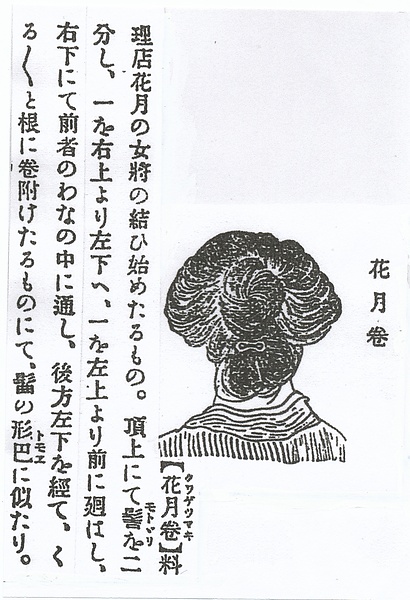 花月卷
クワゲツマキ
【花月卷】料
理店花月の女將の結ひ始めたるもの。頂上にて髻を二
モトドリ
分し、一を右上より左下へ、一を左上より前に廻はし、
右下にて前者のわなの中に通し、後方左下を經て、く
る〱と根に卷附けたるものにて、髷の形巴に似たり。
トモヱ